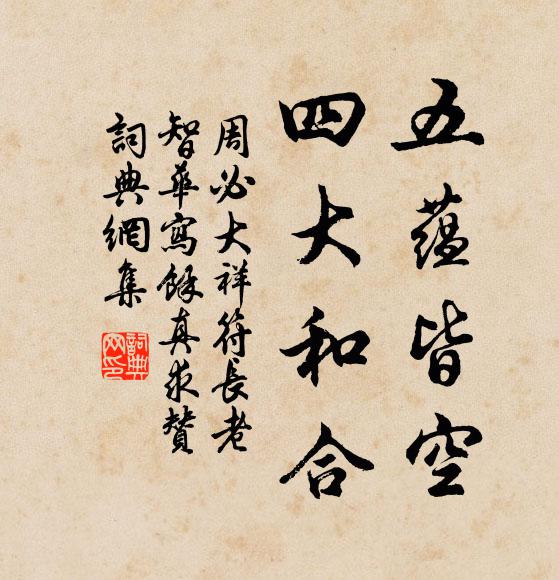 五蘊皆空
四大和合
周必大祥符長老
智華寫餘真求贊
詞典網集
詞典
网印